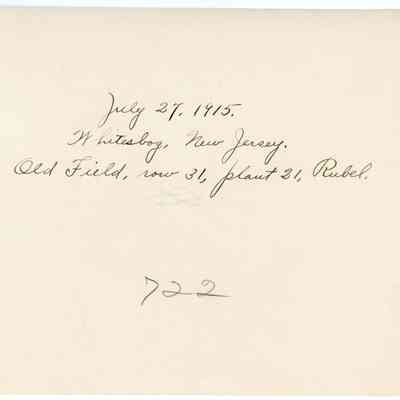 July 27, 1915.
Whitesbog, New Jersey.
Old Field, row 31, plant 21, Rubel.
722